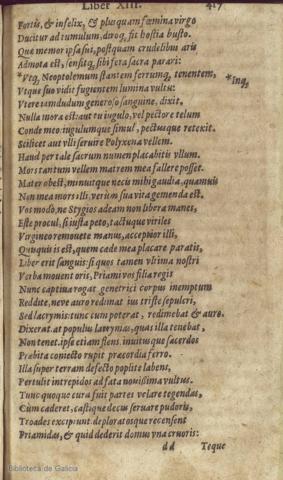 Liber XIII. 417
Fortis, & infelix, & plusquam fœmina virgo
Ducitur ad tumulum, diroq; fit hostia busto.
Quæ memor ipsa sui, postquam crudelibus aris
Admota est, sensitq; sibi fera sacra parari:
*Vtq; Neoptolemum stantem ferrumq; tenentem, *Inq;
Vtque suo vidit fugientem lumina vultu:
Vtere iamdudum generoso sanguine, dixit.
Nulla mora est: aut tu iugulo, vel pectore telum
Conde meo: iugulumque simul, pectusque retexit.
Scilicet aut vlli seruire Polyxena vellem.
Haud per tale sacrum numen placabitis vllum.
Mors tantum vellem matrem mea fallere posset.
Mater obest, minuitque necis mihi gaudia, quamuis
Non mea mors illi: verum sua vita gemenda est.
Vos modo, ne Stygios adeam non libera manes,
Este procul, si iusta peto, tactuque viriles
Virgineo remouete manus, acceptior illi,
Quisquis is est, quem cæde mea placare paratis,
Liber erit sanguis: si quos tamen vltima nostri
Verba mouent oris, Priami vos filia regis
Nunc captiua rogat genetrici corpus inemptum
Reddite, neue auro redimat ius triste sepulcri,
Sed lacrymis: tunc cum poterat, redimebat & auro.
Dixerat. at populus lacrymas, quas illa tenebat,
Non tenet. ipse etiam flens. inuitusque sacerdos
Præbita coniecto rupit præcordia ferro.
Illa super terram defecto poplite labens,
Pertulit intrepidos ad fata nouissima vultus.
Tunc quoque cura fuit partes velare tegendas,
Cùm caderet, castique decus seruare pudoris,
Troades excipiunt. deploratosque recensent
Priamidas, & quid dederit domus vna cruoris:
dd Teque
Biblioteca de Galicia